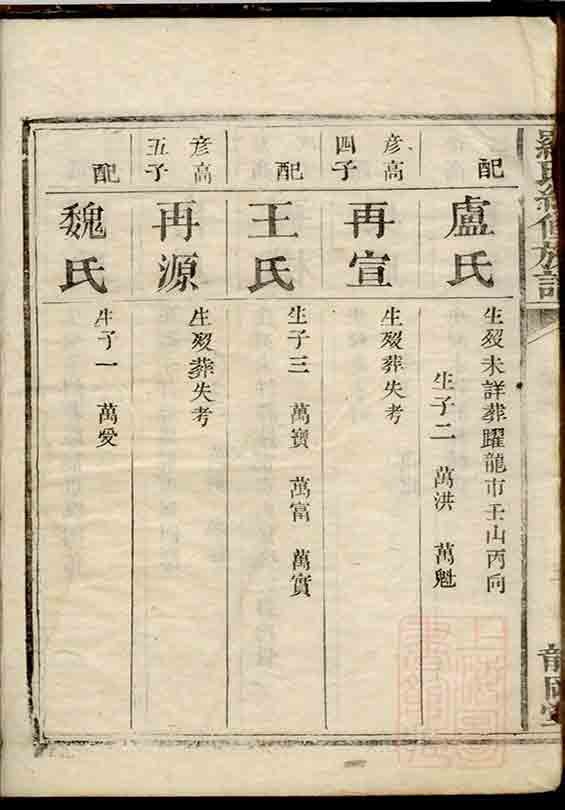 羅氏續修族譜
配
盧氏
生歿未詳葬躍龍市壬山丙向
生子二 萬洪 萬魁
彥高
四子
再宣
生歿葬失考
配
王氏
生子三 萬寶 萬富 萬實
彥高
五子
再源
生歿葬失考
配
魏氏
生子一 萬愛